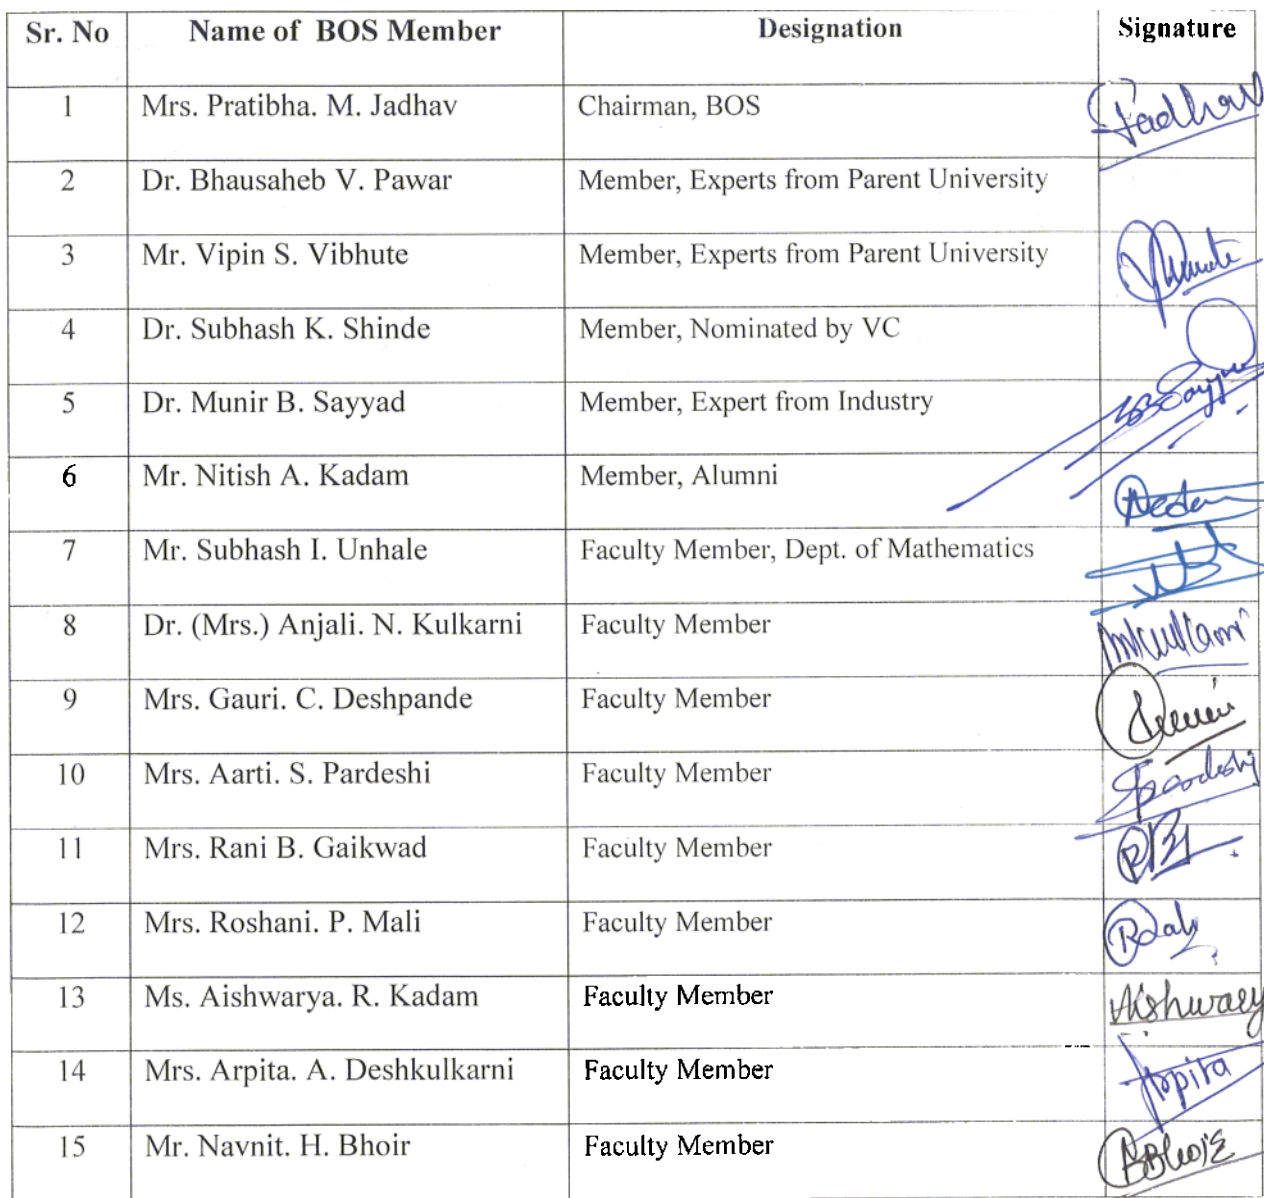 Sr. No Name of BOS Member Designation Signature
1 Mrs. Pratibha. M. Jadhav Chairman, BOS Jadhav
2 Dr. Bhausaheb V. Pawar Member, Experts from Parent University
3 Mr. Vipin S. Vibhute Member, Experts from Parent University
4 Dr. Subhash K. Shinde Member, Nominated by VC
5 Dr. Munir B. Sayyad Member, Expert from Industry
6 Mr. Nitish A. Kadam Member, Alumni
7 Mr. Subhash I. Unhale Faculty Member, Dept. of Mathematics
8 Dr. (Mrs.) Anjali. N. Kulkarni Faculty Member
9 Mrs. Gauri. C. Deshpande Faculty Member
10 Mrs. Aarti. S. Pardeshi Faculty Member
11 Mrs. Rani B. Gaikwad Faculty Member
12 Mrs. Roshani. P. Mali Faculty Member
13 Ms. Aishwarya. R. Kadam Faculty Member
14 Mrs. Arpita. A. Deshkulkarni Faculty Member Arpita
15 Mr. Navnit. H. Bhoir Faculty Member